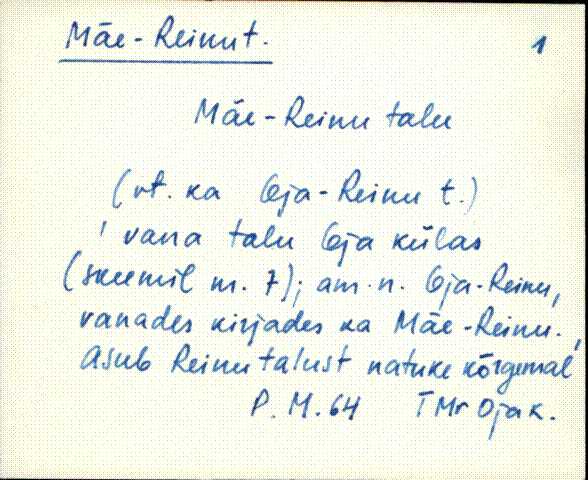 Mäe-Reinu t.
1
Mäe-Reinu talu
(vt. ka Oja-Reinu t.)
' vana talu Oja külas
(skeemil nr. 7); am. n. Oja-Reinu,
vanades kirjades ka Mäe-Reinu.
Asub Reinu talust natuke kõrgemal
P. M. 64 TMr Oja k.